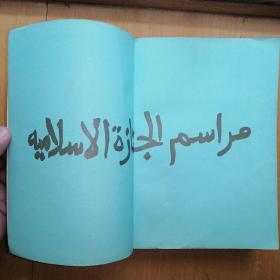 مراسم الجنازة الاسلاميه